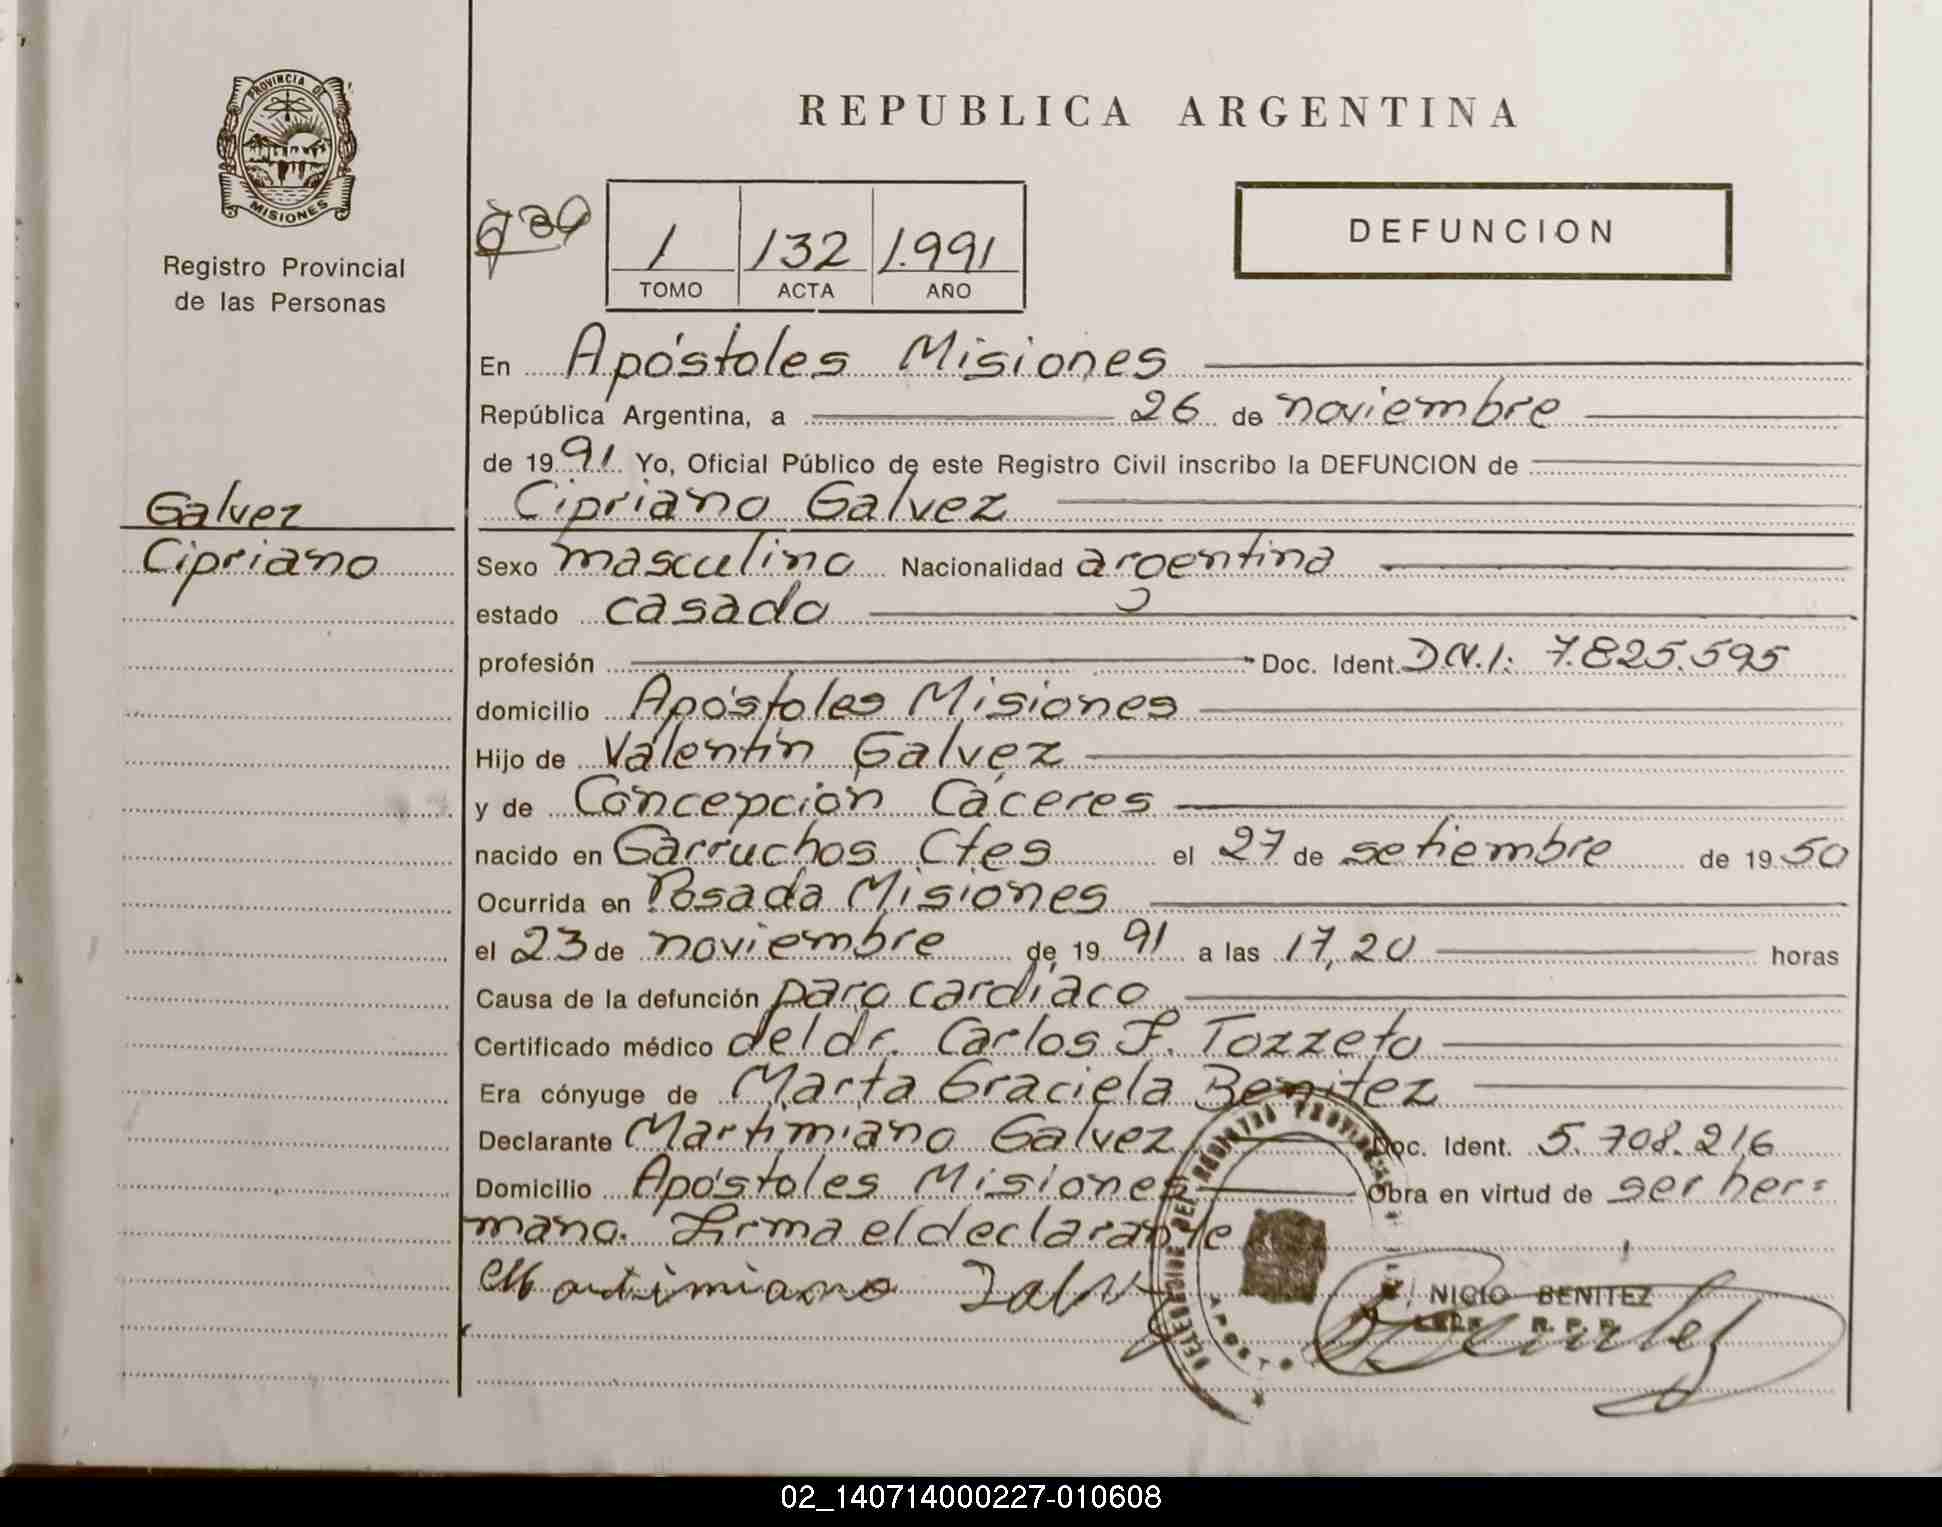 PROVINCIA DE
MISIONES
Registro Provincial
de las Personas
REPUBLICA ARGENTINA
1 132 1.991
TOMO ACTA AÑO
DEFUNCION
En Apóstoles Misiones
República Argentina, a 26 de noviembre
de 19 91 Yo, Oficial Público de este Registro Civil inscribo la DEFUNCION de
Galvez
Cipriano
Cipriano Galvez
Sexo masculino Nacionalidad argentina
estado casado
profesión Doc. Ident. D.N.I: 7.825.595
domicilio Apóstoles Misiones
Hijo de Valentín Galvez
y de Concepción Cáceres
nacido en Garruchos Ctes el 27 de setiembre de 19 50
Ocurrida en Posada Misiones
el 23 de noviembre de 19 91 a las 17,20 horas
Causa de la defunción paro cardíaco
Certificado médico del dr. Carlos F. Tozzeto
Era cónyuge de Marta Graciela Benitez
Declarante Martimiano Galvez Doc. Ident. 5.708.216
Domicilio Apóstoles Misiones Obra en virtud de ser her=
mano. Firma el declarante
Martimiano Galvez
NICIO BENITEZ
R. P. P.
02_140714000227-010608